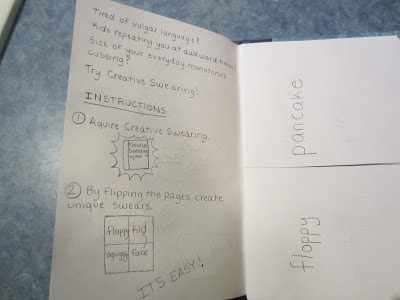 Tired of vulgar language?
Kids repeating you at awkward times?
Sick of your everyday, monotonous
cussing?
Try Creative Swearing!
INSTRUCTIONS
① Aquire Creative Swearing.
Creative
Swearing
② By flipping the pages, create
unique swears.
floppy kid
squiggy face
IT'S EASY!
pancake
floppy